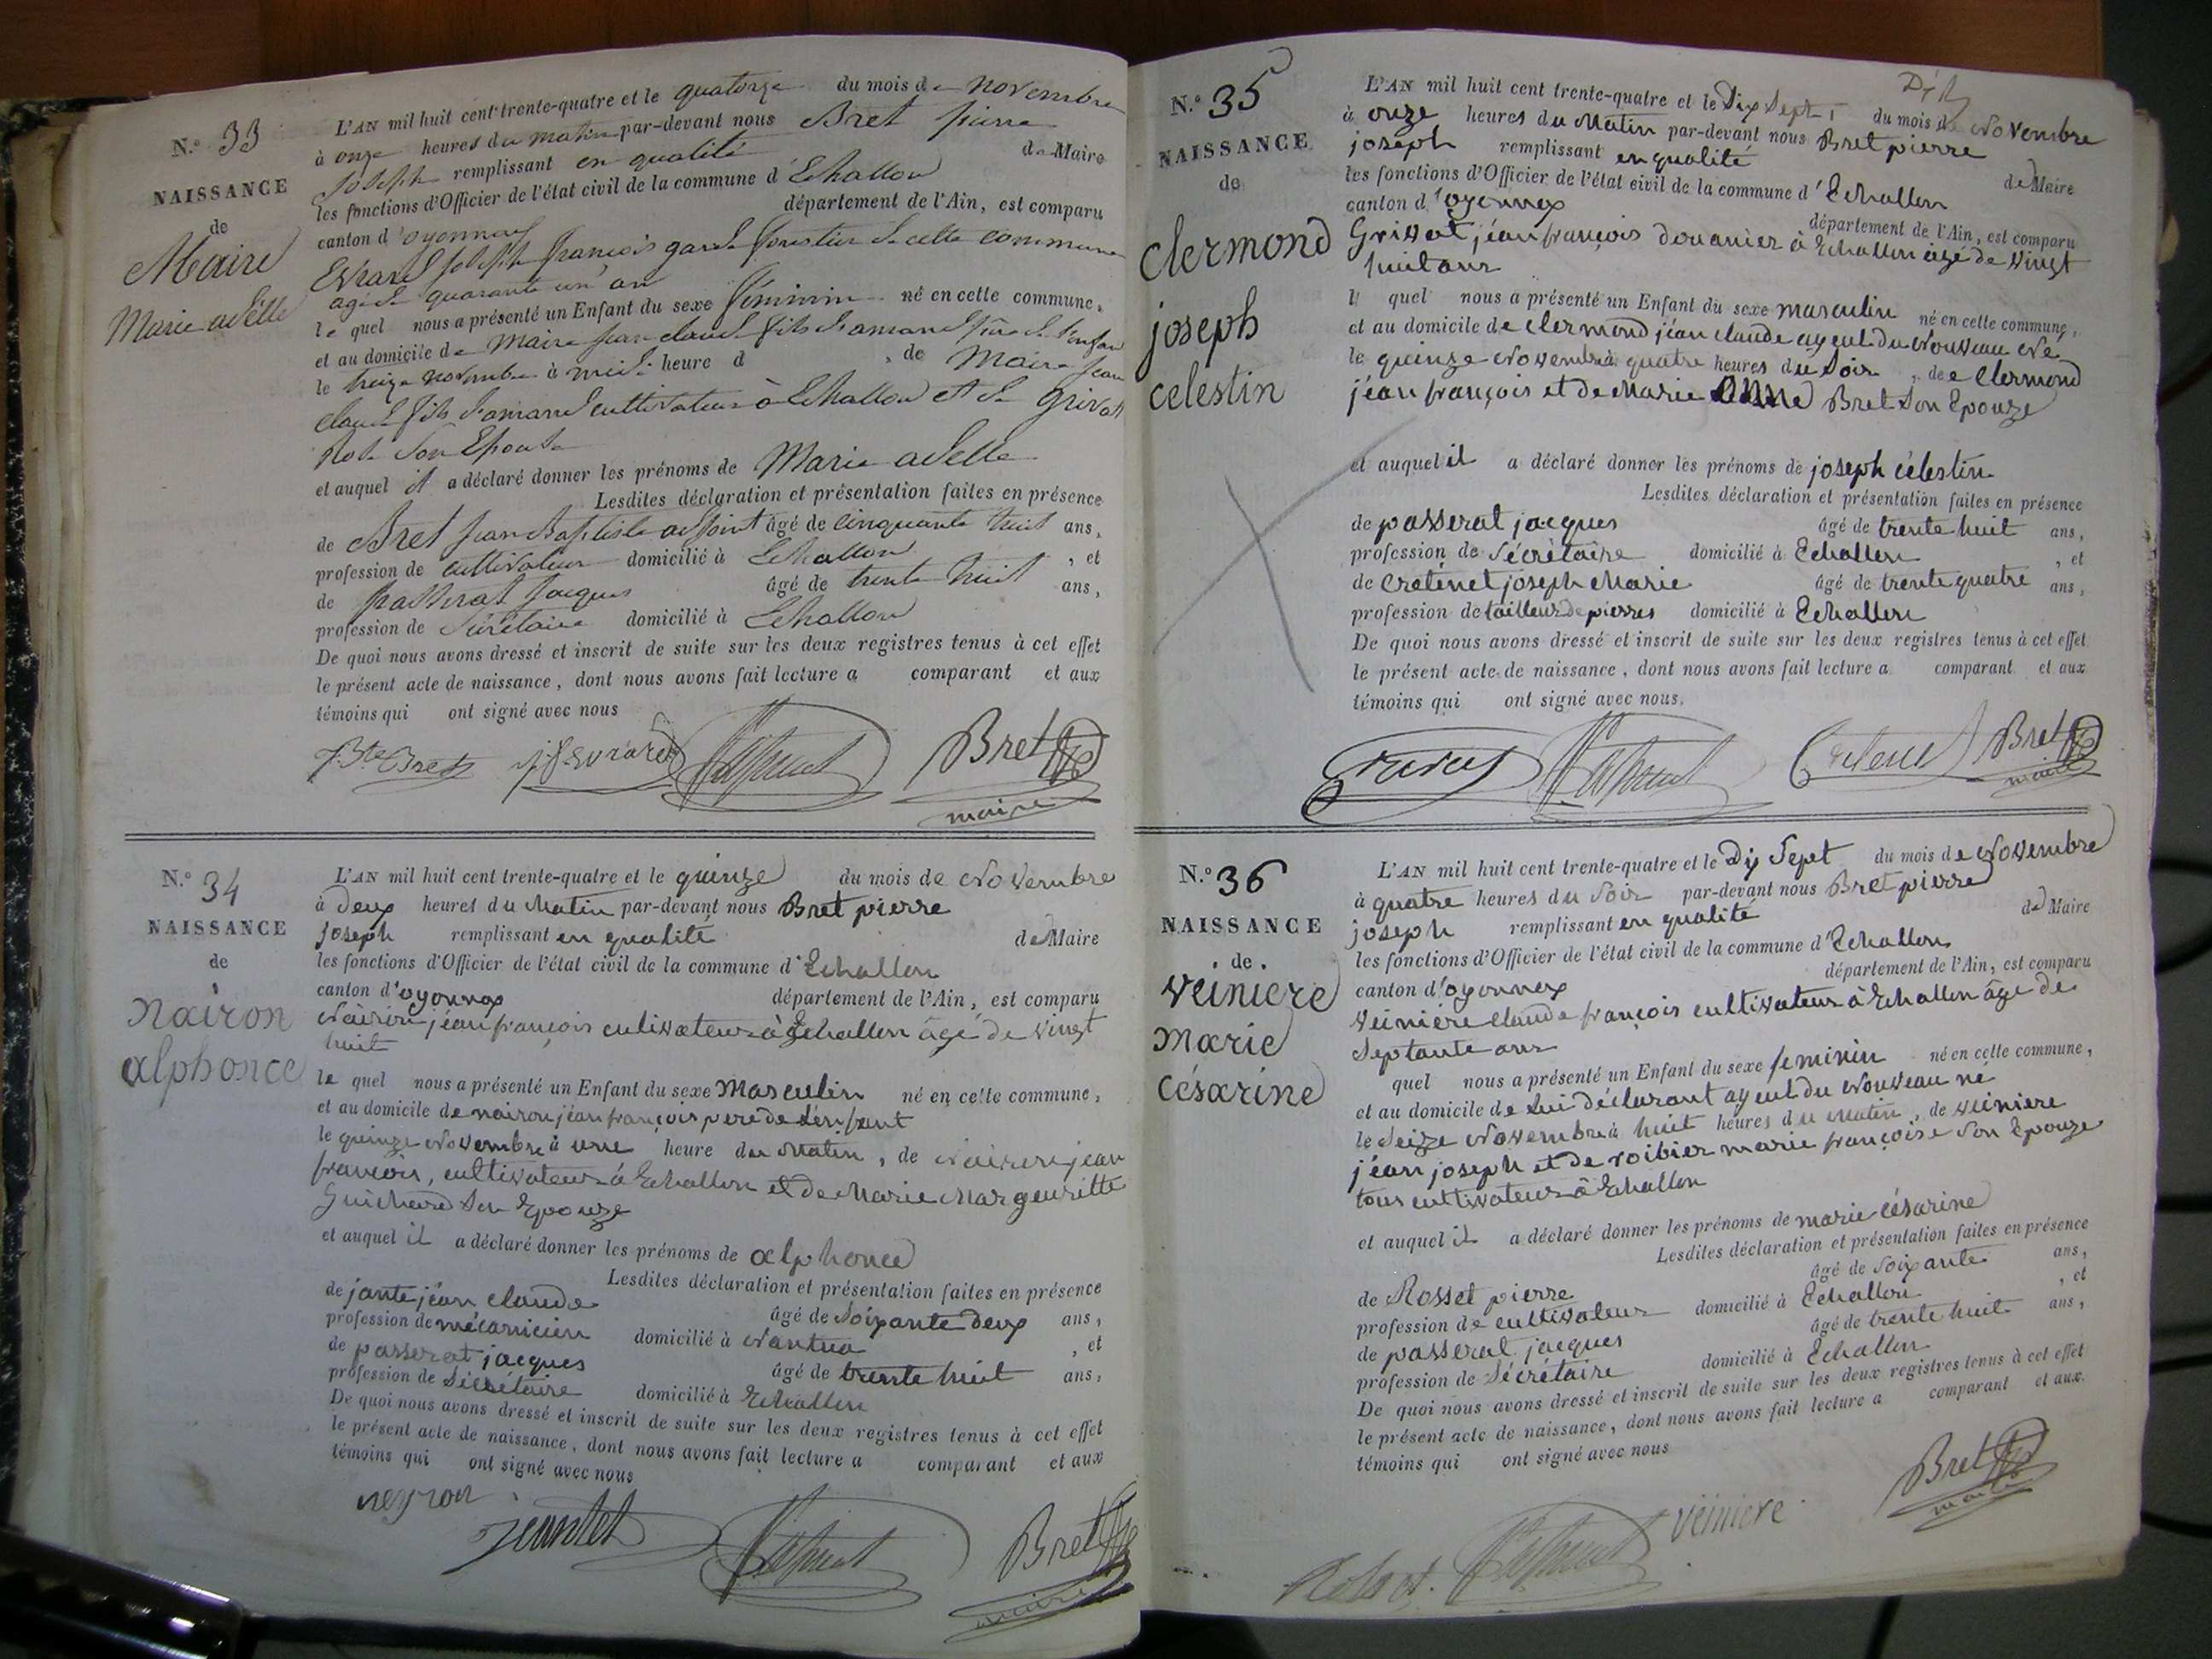 N.º 33
NAISSANCE
de
Maire
Marie adelle
L'AN mil huit cent trente-quatre et le quatorze du mois de novembre
à onze heures du matin par-devant nous Bret pierre
joseph remplissant en qualité de Maire
les fonctions d'Officier de l'état civil de la commune d'Echallon
canton d'oyonnax département de l'Ain, est comparu
Evrard joseph françois garde forestier de cette commune
agé de quarante un an
le quel nous a présenté un Enfant du sexe féminin né en cette commune,
et au domicile de Maire jean claude fils d'amand père de l'enfan
le treize novembre à midi heure d , de Maire jean
claude fils d'amand cultivateur à Echallon et de Grivat
Rose son Epouse
et auquel il a déclaré donner les prénoms de Marie adelle
Lesdites déclaration et présentation faites en présence
de Bret jean Baptiste adjoint âgé de cinquante huit ans,
profession de cultivateur domicilié à Echallon , et
de passerat jacques âgé de trente huit ans,
profession de Sécrétaire domicilié à Echallon
De quoi nous avons dressé et inscrit de suite sur les deux registres tenus à cet effet
le présent acte de naissance, dont nous avons fait lecture a comparant et aux
témoins qui ont signé avec nous
J. Bte Bret j f Evrard Passerat Bret
maire
N.º 34
NAISSANCE
de
Nairon
alphonce
L'AN mil huit cent trente-quatre et le quinze du mois de Novembre
à deux heures du Matin par-devant nous Bret pierre
joseph remplissant en qualité de Maire
les fonctions d'Officier de l'état civil de la commune d'Echallon
canton d'oyonnax département de l'Ain, est comparu
Nairon jéan françois cultivateur à Echallon âgé de vingt
huit
le quel nous a présenté un Enfant du sexe Masculin né en cette commune,
et au domicile de nairon jéan françois pere de l'énfant
le quinze Novembre à une heure du Matin, de Nairon jean
francois, cultivateur à Echallon et de Marie Margeuritte
Guichard son Epouze
et auquel il a déclaré donner les prénoms de alphonce
Lesdites déclaration et présentation faites en présence
de jante jéan claude âgé de Soixante deux ans,
profession de mécanicien domicilié à Nantua , et
de passerat jacques âgé de trente huit ans,
profession de Sécrétaire domicilié à Echallon
De quoi nous avons dressé et inscrit de suite sur les deux registres tenus à cet effet
le présent acte de naissance, dont nous avons fait lecture a comparant et aux
témoins qui ont signé avec nous
neyron
Jeantet Passerat Bret
maire
N.º 35
NAISSANCE
de
clermond
joseph
celestin
L'AN mil huit cent trente-quatre et le Dix Sept du mois de Novembre
à onze heures du Matin par-devant nous Bret pierre
joseph remplissant en qualité de Maire
les fonctions d'Officier de l'état civil de la commune d'Echallon
canton d'oyonnax département de l'Ain, est comparu
Grivat jéan françois douanier à Echallon agé de vingt
huit ans
l quel nous a présenté un Enfant du sexe masculin né en cette commune,
et au domicile de clermond jéan claude ayeul du Nouveau Né
le quinze Novembre à quatre heures du Soir, de clermond
jéan françois et de Marie Anne Bret Son Epouze
et auquel il a déclaré donner les prénoms de joseph célestin
Lesdites déclaration et présentation faites en présence
de passerat jacques âgé de trente huit ans,
profession de Sécrétaire domicilié à Echallon , et
de Cretinet joseph Marie âgé de trente quatre ans,
profession de tailleur de pierres domicilié à Echallon
De quoi nous avons dressé et inscrit de suite sur les deux registres tenus à cet effet
le présent acte de naissance, dont nous avons fait lecture a comparant et aux
témoins qui ont signé avec nous.
Passerat Bret
maire
N.º 36
NAISSANCE
de
veiniere
Marie
césarine
L'AN mil huit cent trente-quatre et le Dix Sept du mois de Novembre
à quatre heures du Soir par-devant nous Bret pierre
joseph remplissant en qualité de Maire
les fonctions d'Officier de l'état civil de la commune d'Echallon
canton d'oyonnax département de l'Ain, est comparu
veiniere claude françois cultivateur à Echallon âge de
Septante ans
quel nous a présenté un Enfant du sexe feminin né en cette commune,
et au domicile de lui déclarant ayeul du Nouveau né
le Seize Novembre à huit heures du Matin, de veiniere
jéan joseph et de roibier marie françoise Son Epouze
tous cultivateur à Echallon
et auquel il a déclaré donner les prénoms de marie césarine
Lesdites déclaration et présentation faites en présence
de Rosset pierre âgé de Soixante ans,
profession de cultivateur domicilié à Echallon , et
de passerat jacques âgé de trente huit ans,
profession de Sécrétaire domicilié à Echallon
De quoi nous avons dressé et inscrit de suite sur les deux registres tenus à cet effet
le présent acte de naissance, dont nous avons fait lecture a comparant et aux
témoins qui ont signé avec nous
Bret
maire
Passerat veiniere